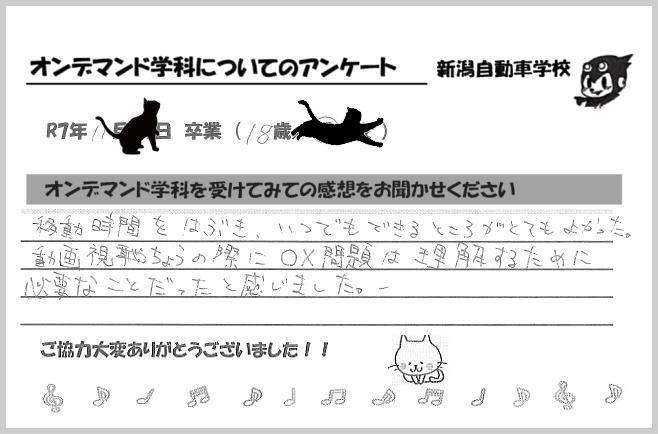 オンデマンド学科についてのアンケート 新潟自動車学校
R7年 月 日 卒業 ( 18歳 )
オンデマンド学科を受けてみての感想をお聞かせください
移動時間をはぶき、いつでもできるところがとてもよかった。
動画視聴ちょうの際に○×問題は理解するために
必要なことだったと感じました。
ご協力大変ありがとうございました!!